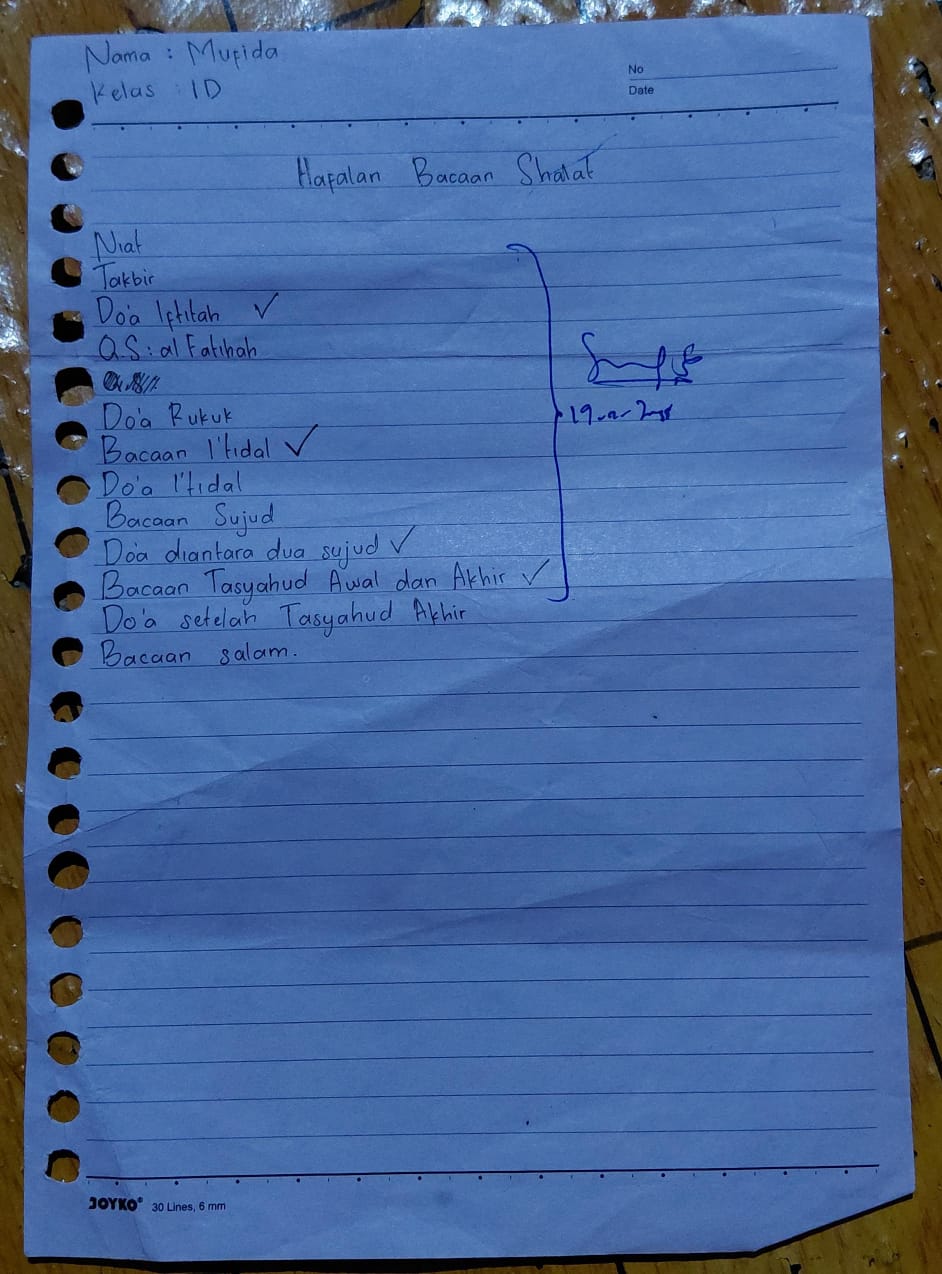 Nama : Mufida
Kelas : 1D
No
Date
Hafalan Bacaan Shalat
Niat
Takbir
Do'a Iftitah ✓
Q.S : al Fatihah
Do'a Rukuk
Bacaan I'tidal ✓
Do'a I'tidal
Bacaan Sujud
Do'a diantara dua sujud ✓
Bacaan Tasyahud Awal dan Akhir ✓
Do'a setelah Tasyahud Akhir
Bacaan salam.
JOYKO® 30 Lines, 6 mm